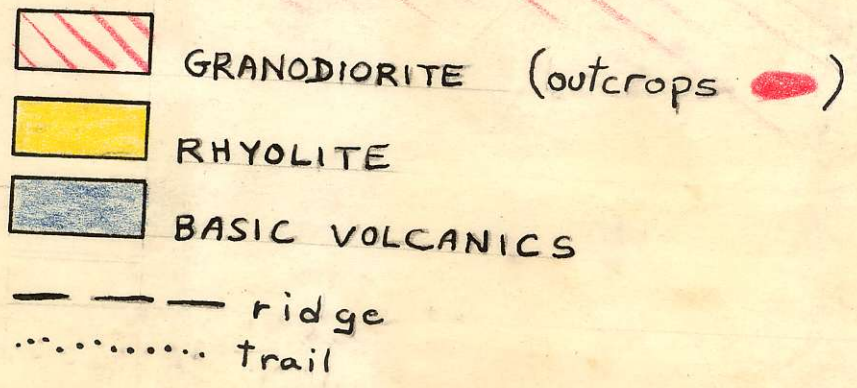 GRANODIORITE (outcrops )
RHYOLITE
BASIC VOLCANICS
ridge
trail